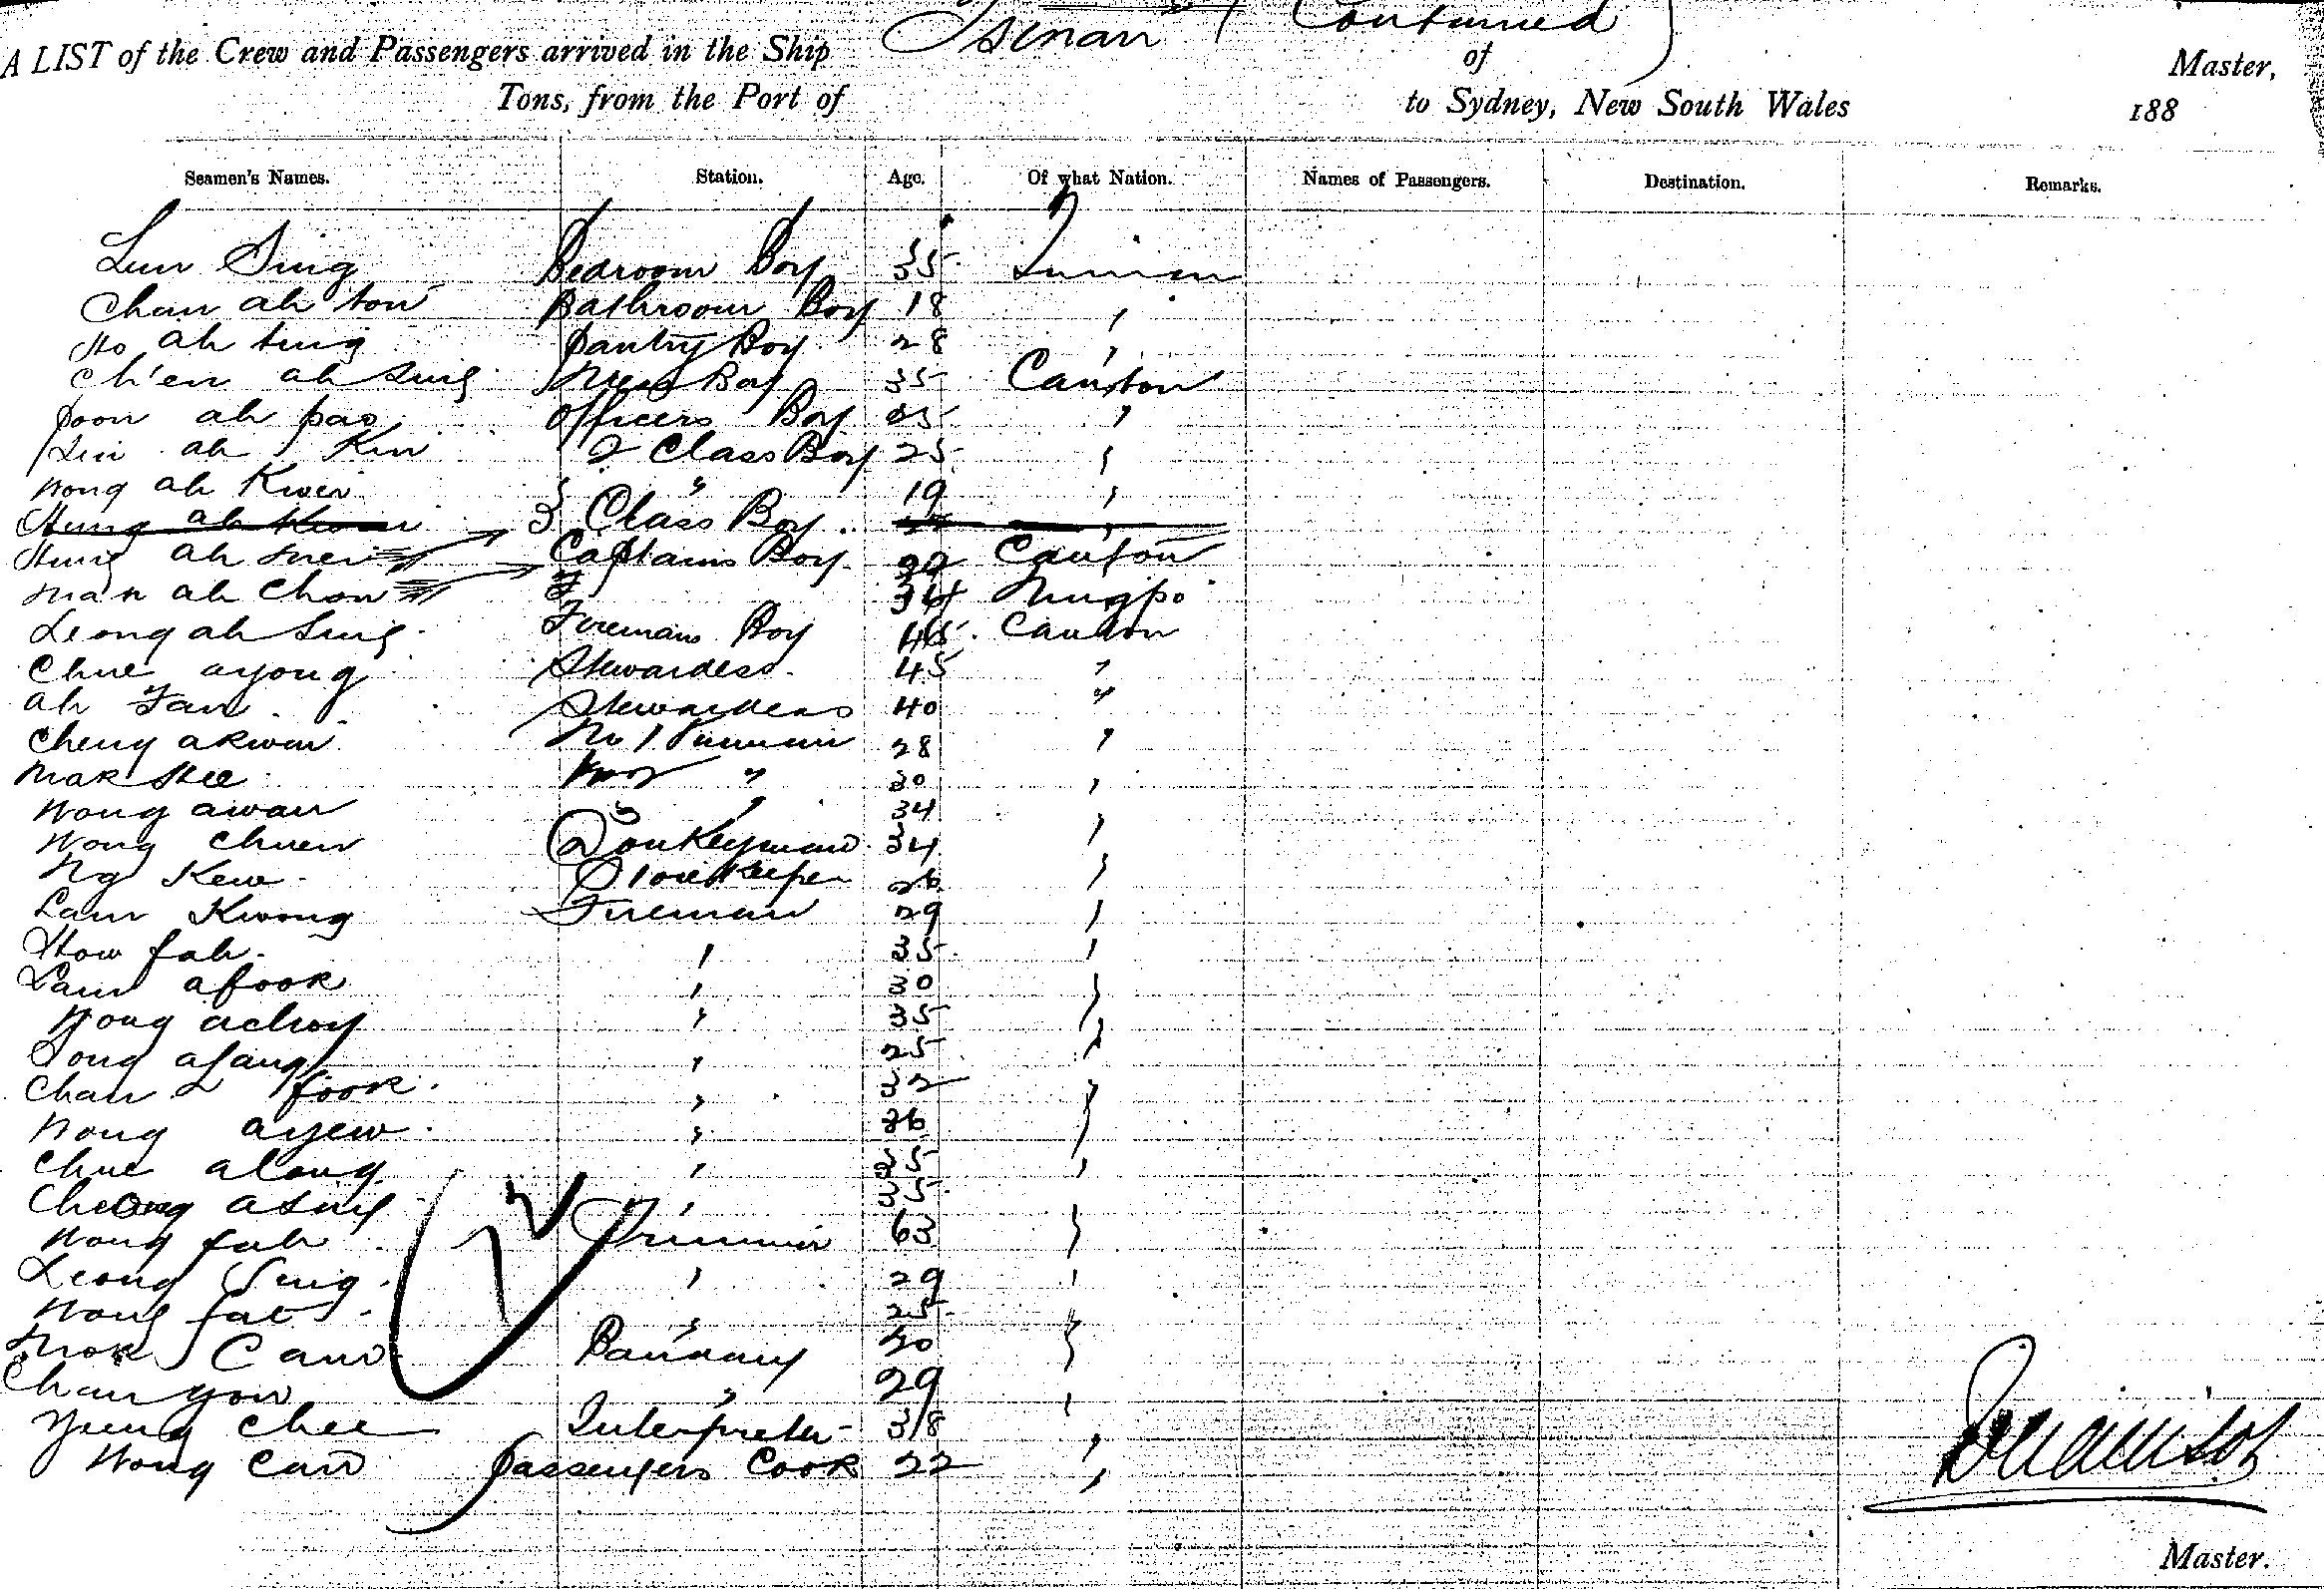 Tsinan (Continued)
A LIST of the Crew and Passengers arrived in the Ship of Master,
Tons, from the Port of to Sydney, New South Wales 188
Seamen's Names. Station. Age. Of what Nation. Names of Passengers. Destination. Remarks.
Lun Sing Bedroom Boy 35
Chan ah ton Bathroom Boy 18 "
Ho ah ting Pantry Boy 28 "
Ch'en ah sung Mess Boy 35 Canton
poon ah pao Officers Boy "
ah Kin 2 Class Boy 25 "
Wong ah Kwei " 19 "
Hung ah 3 Class Boy
Hung ah Captains Boy Canton
Mak ah Chow Ningpo
Leong ah Sing Firemans Boy Canton
Chue ayong Stewardess 45 "
ah Stewardess 40 "
Cheng akwan No 1 28 "
Mak Hee No 2 " 30 "
Wong awan 3 " 34 "
Wong Chuen Donkeyman 34 "
Ng Kew Storekeeper 26 "
Lam Kwong Fireman 29 "
How fah " 35 "
Lam afook " 30 "
Wong achoy " 35 "
afang " 25 "
Chan fook " 32 "
Wong ayew " 36 "
Chue alang " "
Cheong asing " 35
Wong fah Trimmer 63 "
Leong Sing " 29 "
Wong fat " 25 "
Mok Cam "
Chan you " 29 "
Yung Chee Interpreter 38 "
Wong Cam passengers Cook 22 "
Master.